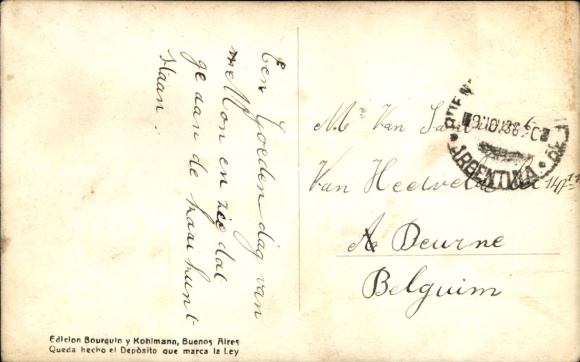 Een Goeden dag van
Mon en zie dat
ge aan de kaai kunt
staan.
Mr Van
Van
A Deurne
Belguim
ARGENTINA
Edicion Bourquin y Kohlmann, Buenos Aires
Queda hecho el Depósito que marca la Ley